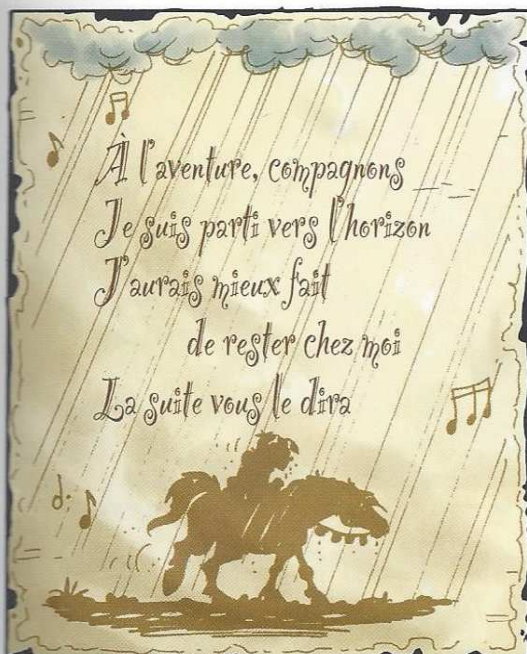 À l'aventure, compagnons
Je suis parti vers l'horizon
J'aurais mieux fait
de rester chez moi
La suite vous le dira